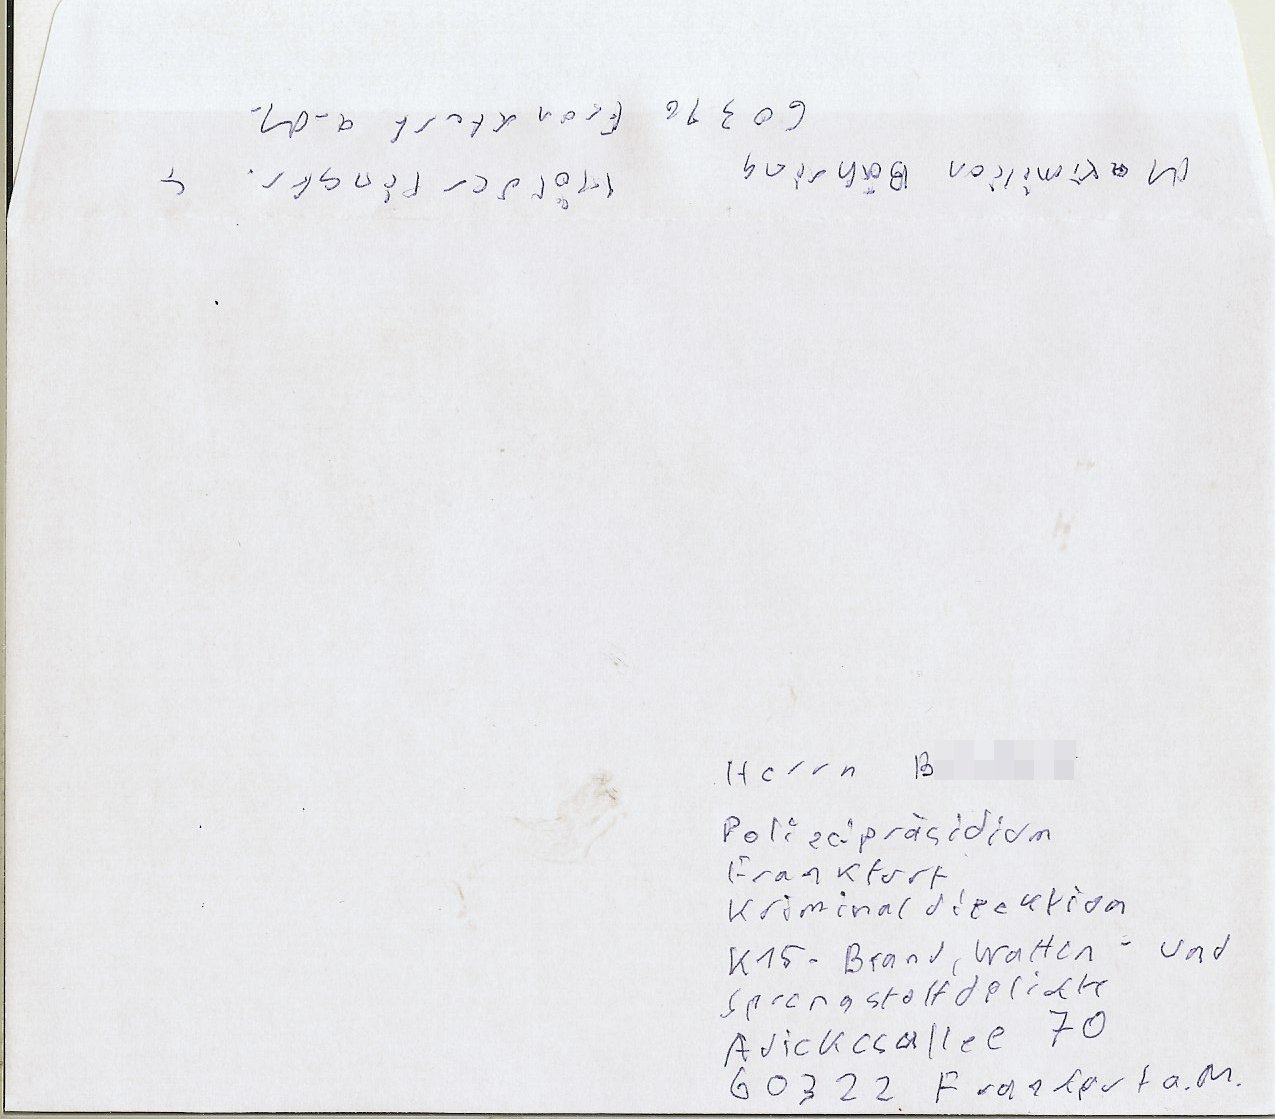 Maximilian Bähring Hölderlinstr. 4
60316 Frankfurt a.M.
Herrn B
Polizeipräsidium
Frankfurt
Kriminaldirektion
K15- Brand, Waffen- und
Sprengstoffdelikte
Adickesallee 70
60322 Frankfurt a.M.